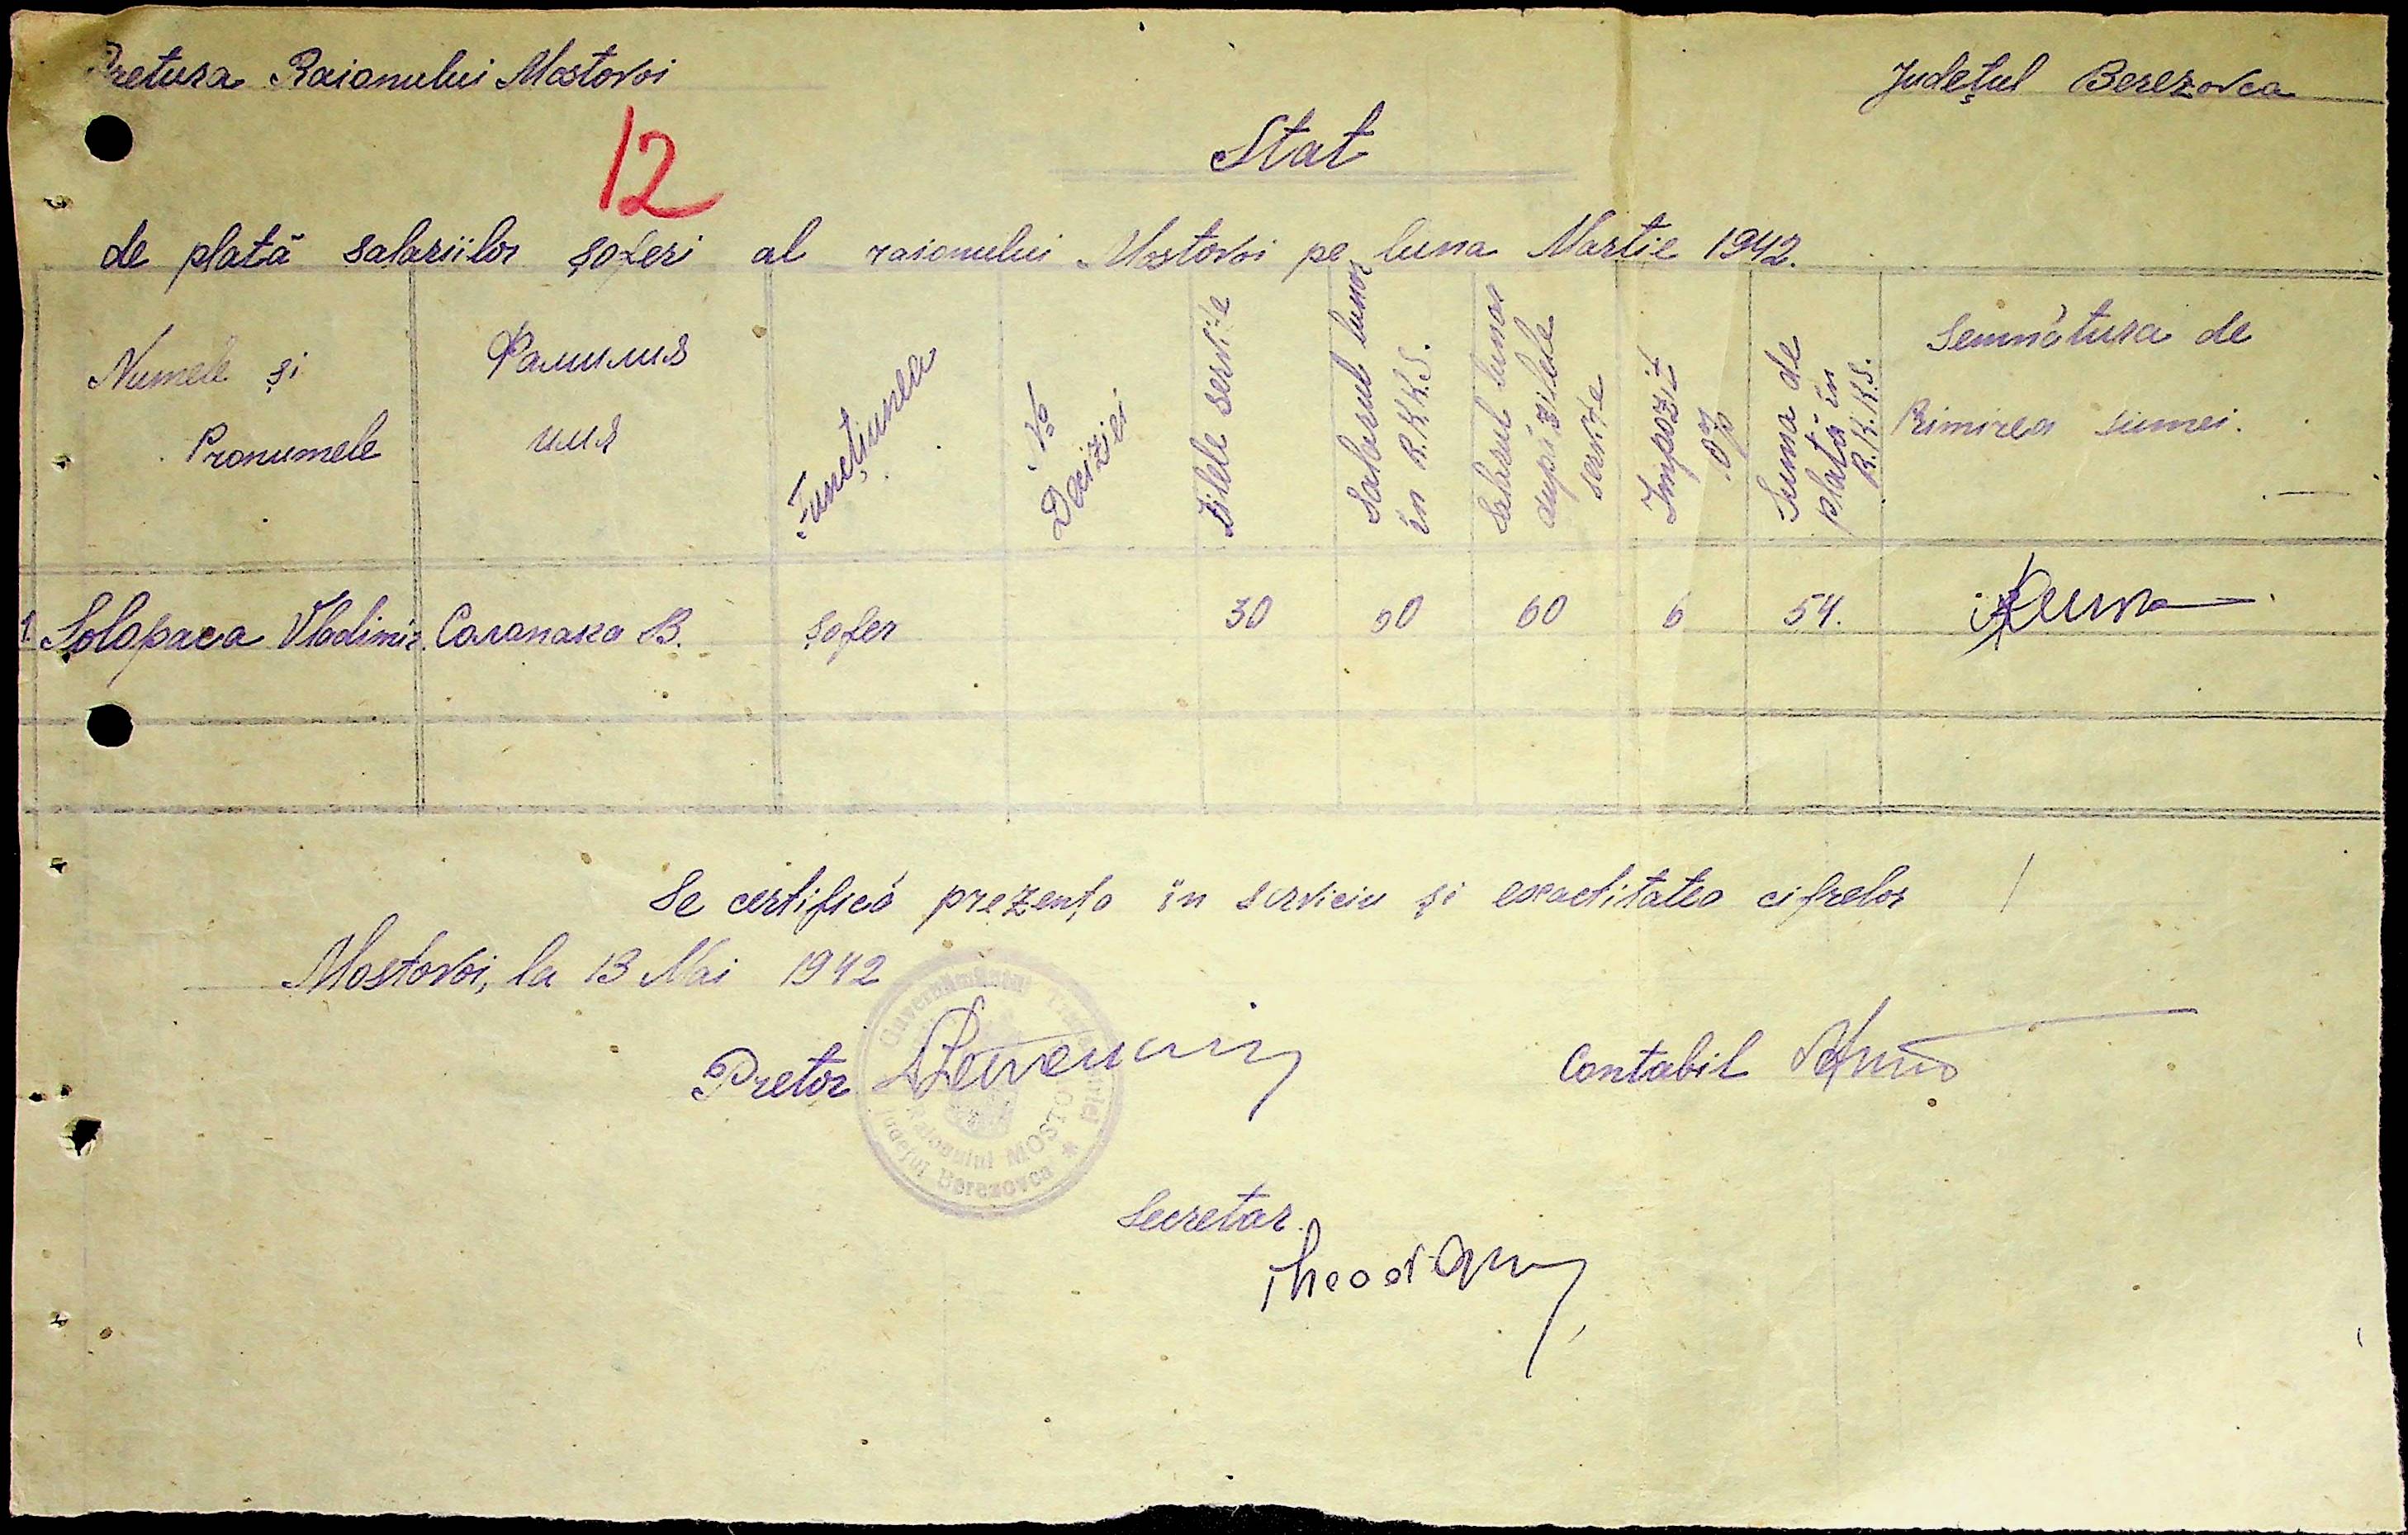 Pretura Raionului Mostovoi
Județul Berezovca
12
Stat
de plată salariilor șoferi al raionului Mostovoi pe luna Martie 1942.
Numele și Pronumele
Фамилия имя
Funcțiunea
No Deciziei
Zilele servite
Salarul lunar în R.K.K.S.
Salarul lunar după zilele servite
Impozit %
Suma de plată în R.K.K.S.
Semnătura de Rimirea sumei.
1. Solopaca Vladimir. Солопака В. șofer 30 60 60 6 54.
Se certifică prezența în serviciu și exactitatea cifrelor
Mostovoi, la 13 Mai 1942
Pretor
Contabil
Guvernământul
Raionului MOSTO
Județul Berezovca
Secretar